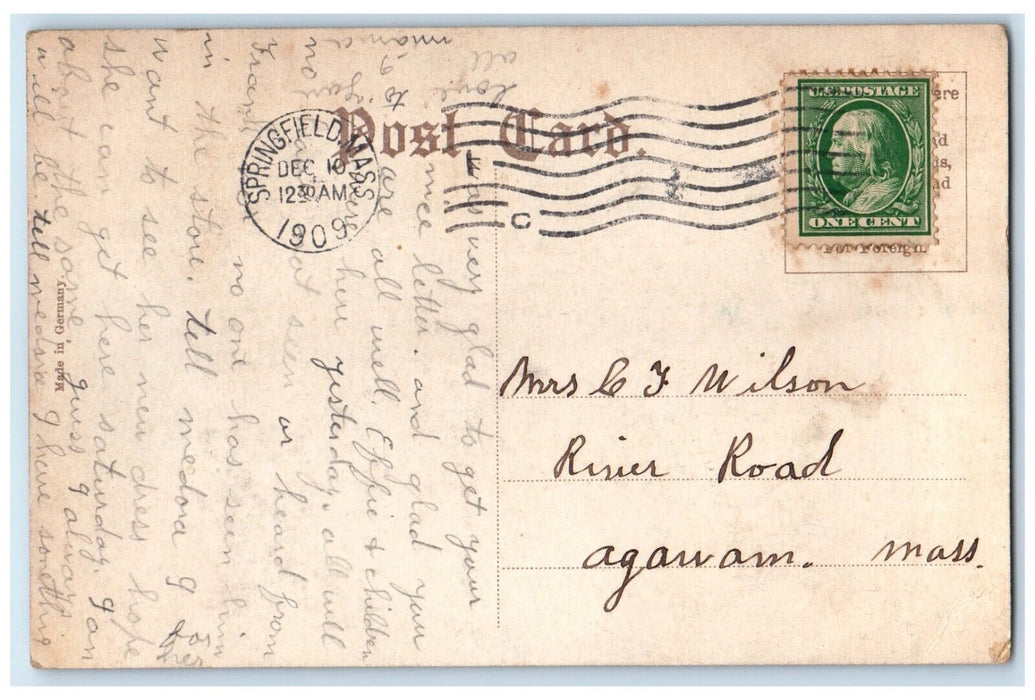 Post Card.
SPRINGFIELD, MASS
DEC 10
12 30 AM
1909
U.S. POSTAGE
ONE CENT
For Foreign
Mrs C F Wilson
River Road
agawam. mass.
Made in Germany
was very glad to get your
nice letter. and glad you
are all well, Effie & children
here yesterday, all well
not seen or heard from
Frank
no one has seen him
in the store. tell medora I
want to see her new dress hope
she can get here saturday. I an
about the same, guess I always
will be. tell medora I have somthig
all
love
to
mama